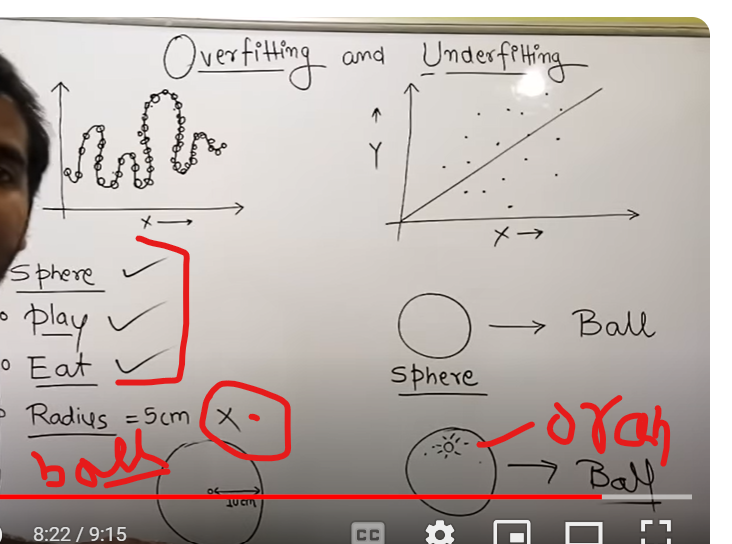 Overfitting and Underfitting
Y
X
X
Sphere
Play
Eat
Radius = 5cm X
ball
10cm
Ball
Sphere
oran
Ball
8:22 / 9:15
CC